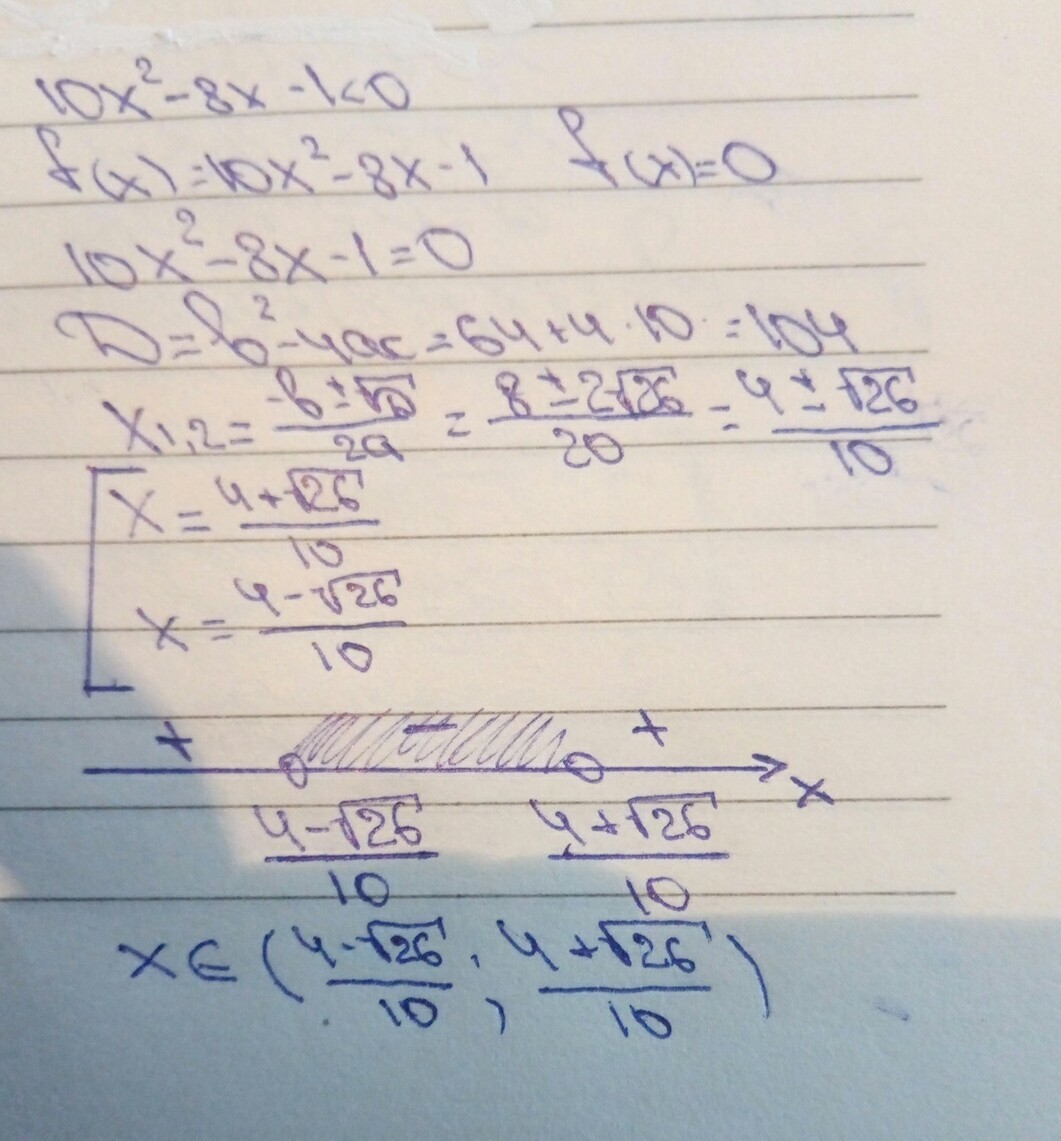 10x²-8x-1<0
f(x)=10x²-8x-1 f(x)=0
10x²-8x-1=0
D=b²-4ac=64+4·10=104
x₁,₂=(-b±√D)/2a=(8±2√26)/20=(4±√26)/10
[x=(4+√26)/10
x=(4-√26)/10
+ - + x
(4-√26)/10 (4+√26)/10
x∈((4-√26)/10;(4+√26)/10)